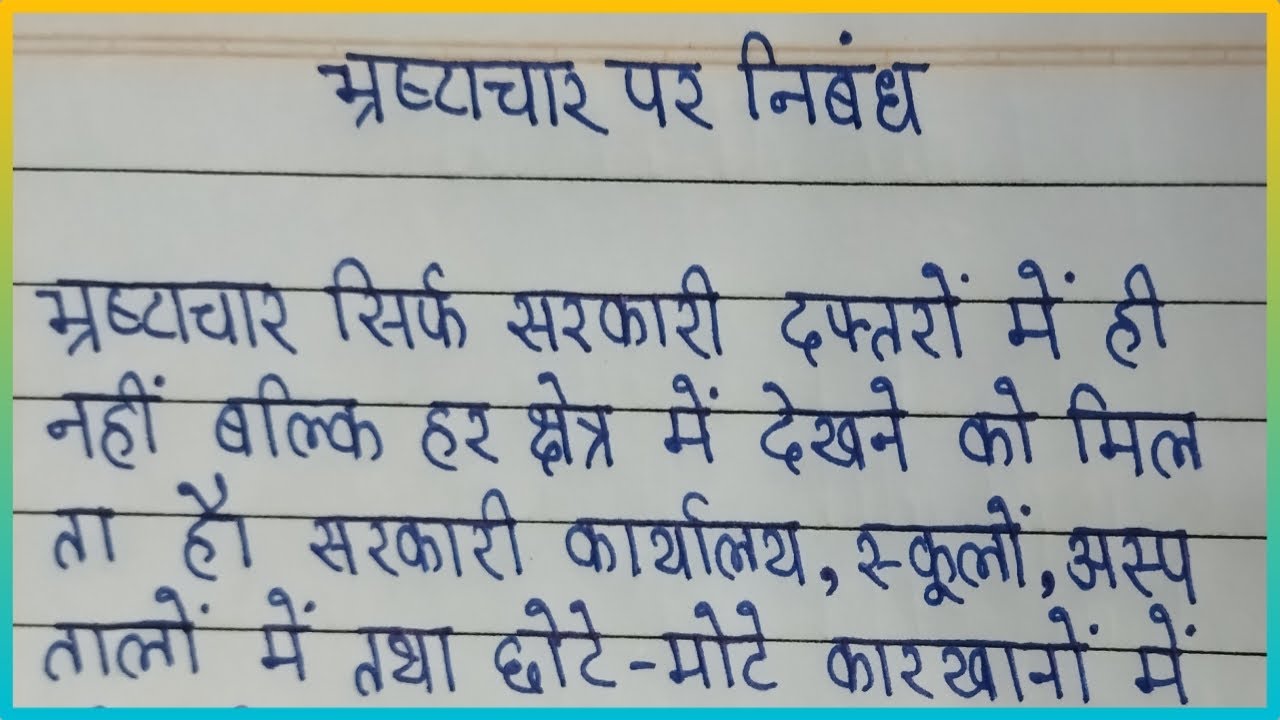 भ्रष्टाचार पर निबंध
भ्रष्टाचार सिर्फ सरकारी दफ्तरों में ही
नहीं बल्कि हर क्षेत्र में देखने को मिल
ता है। सरकारी कार्यालय, स्कूलों, अस्प
तालों में तथा छोटे-मोटे कारखानों में